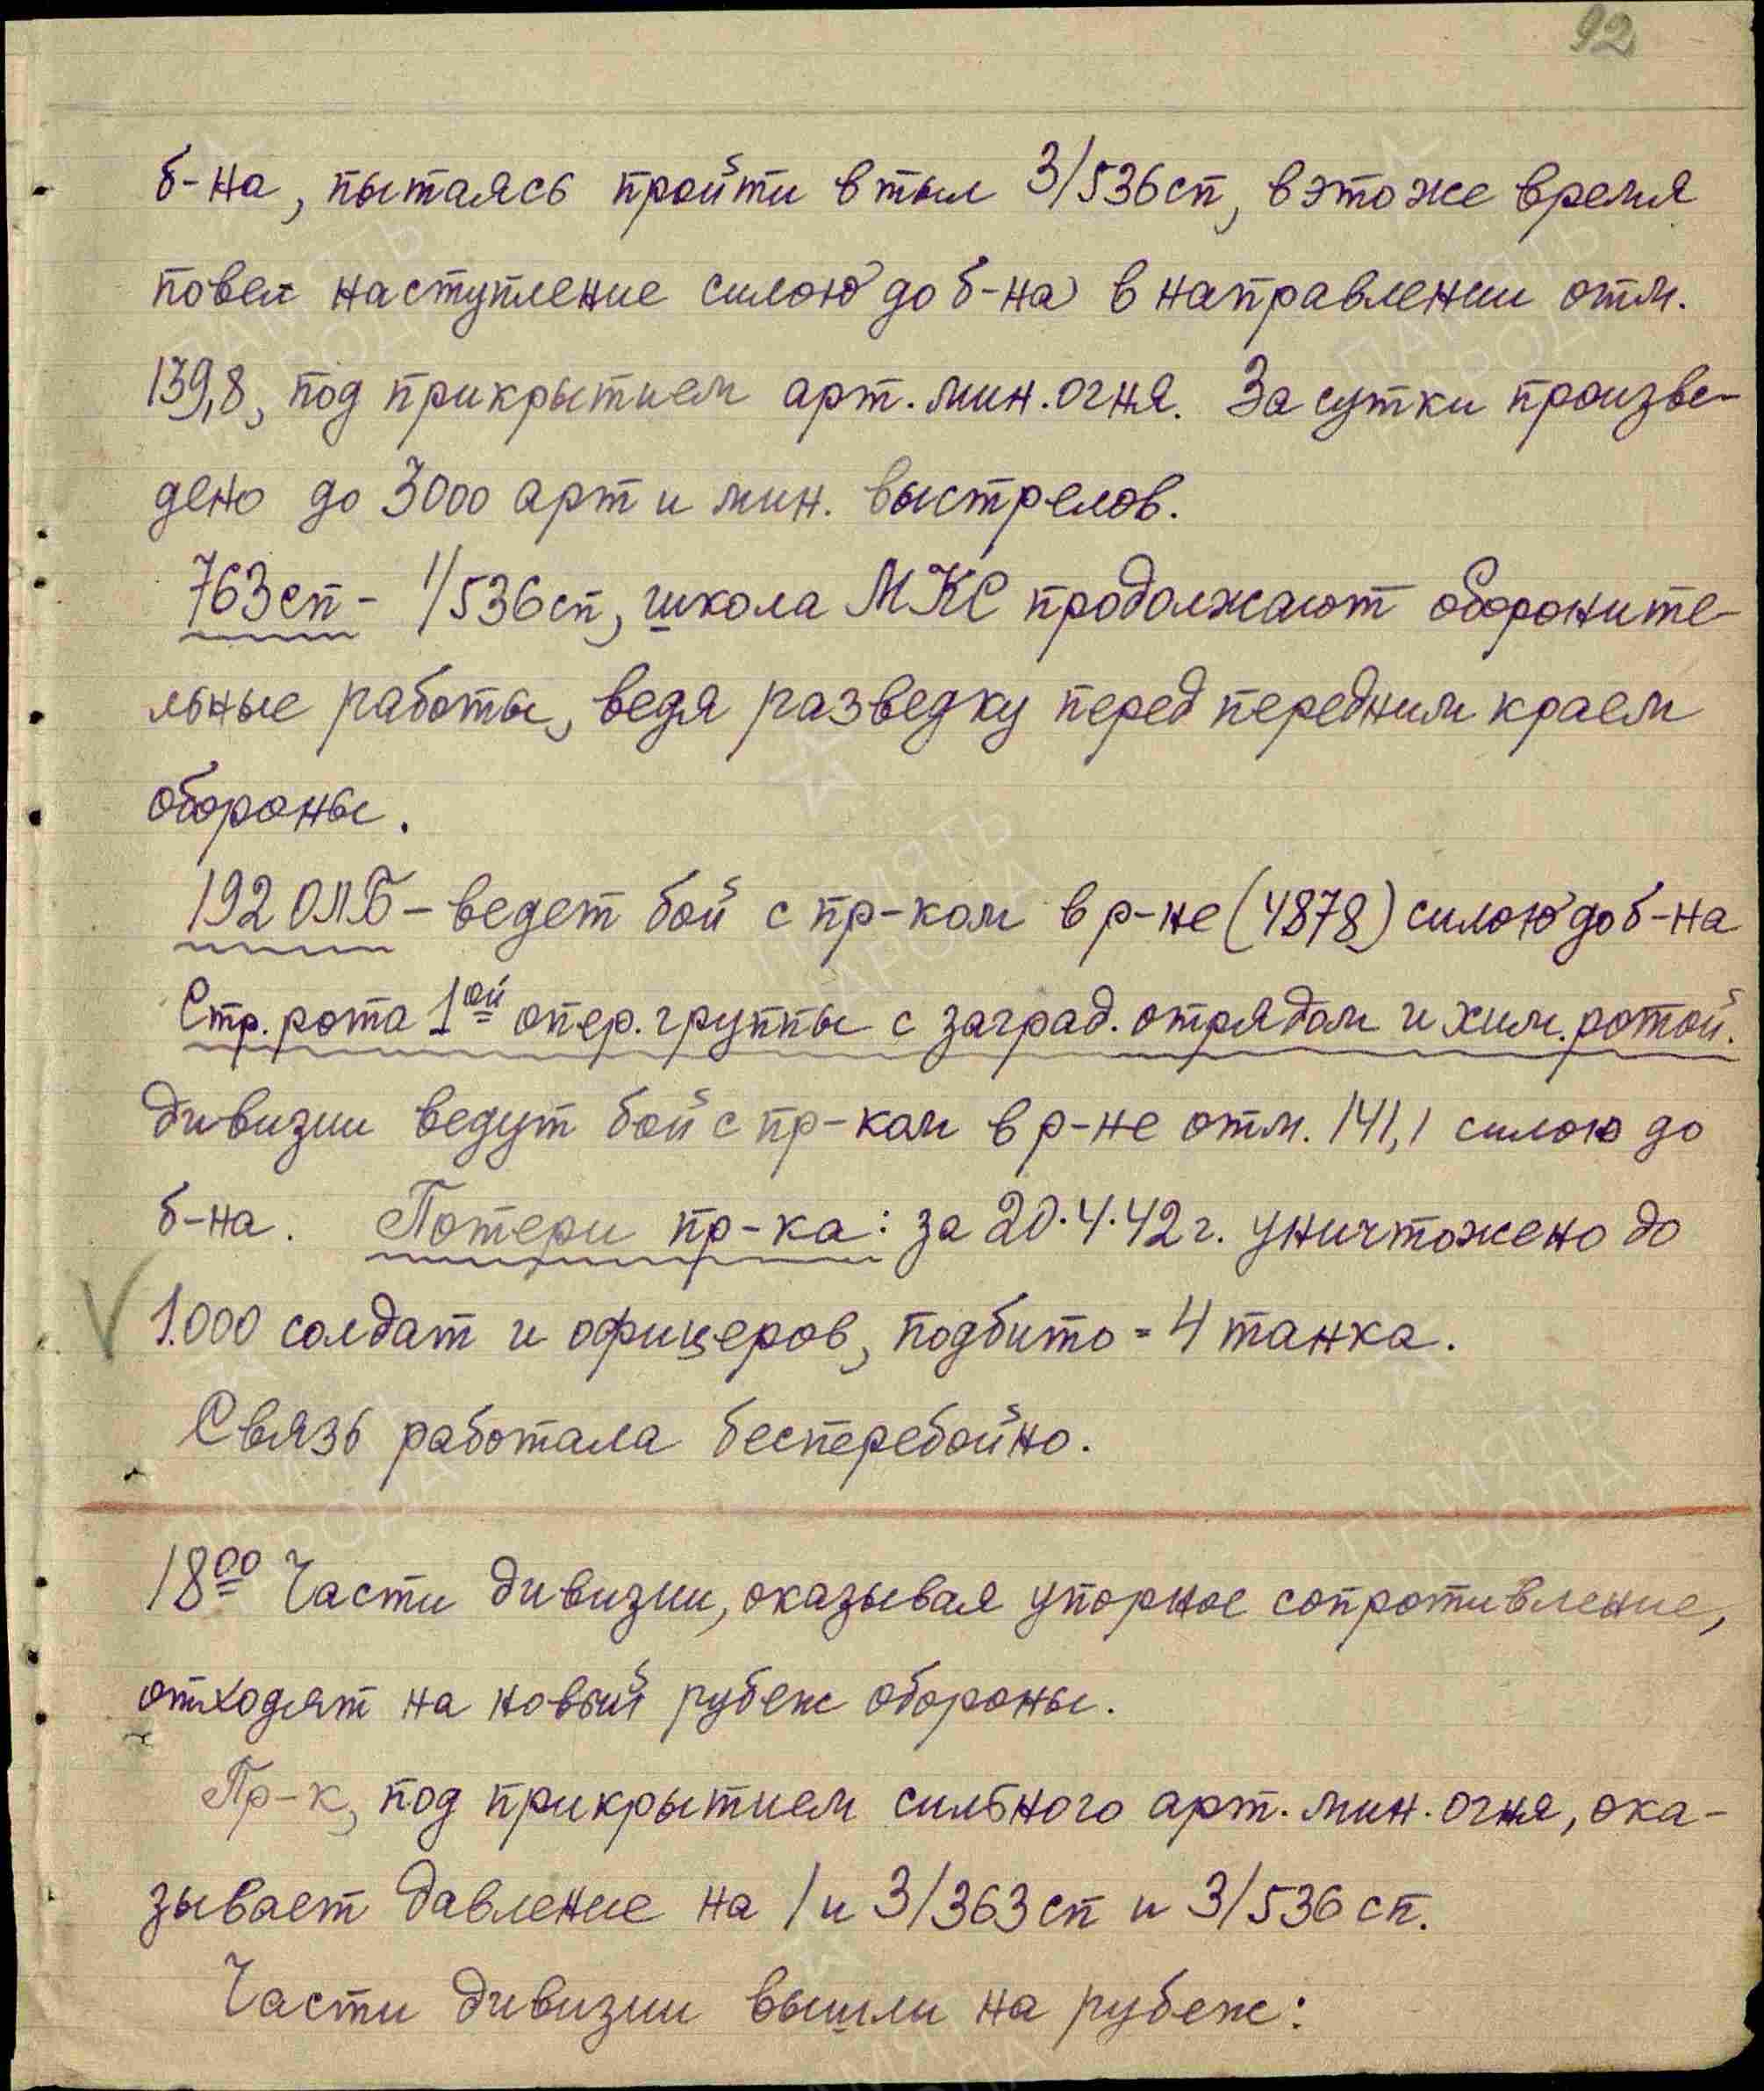 92
б-на, пытаясь пройти в тыл 3/536сп, в это же время
повел наступление силою до б-на в направлении отм.
139,8, под прикрытием арт. мин. огня. За сутки произве-
дено до 3000 арт и мин. выстрелов.
763сп - 1/536сп, школа МКС продолжают оборонте-
льные работы, ведя разведку перед передним краем
обороны.
192 ОЛБ - ведет бой с пр-ком в р-не (4878) силою до б-на
Стр. рота 1ой опер. группы с заград. отрядом и хим. ротой.
дивизии ведут бой с пр-ком в р-не отм. 141,1 силою до
б-на. Потери пр-ка: за 20.4.42г. уничтожено до
1.000 солдат и офицеров, подбито - 4 танка.
Связь работала бесперебойно.
18 00 Части дивизии, оказывая упорное сопротивление,
отходят на новый рубеж обороны.
Пр-к, под прикрытием сильного арт. мин. огня, ока-
зывает давление на 1 и 3/363сп и 3/536 сп.
Части дивизии вышли на рубеж: